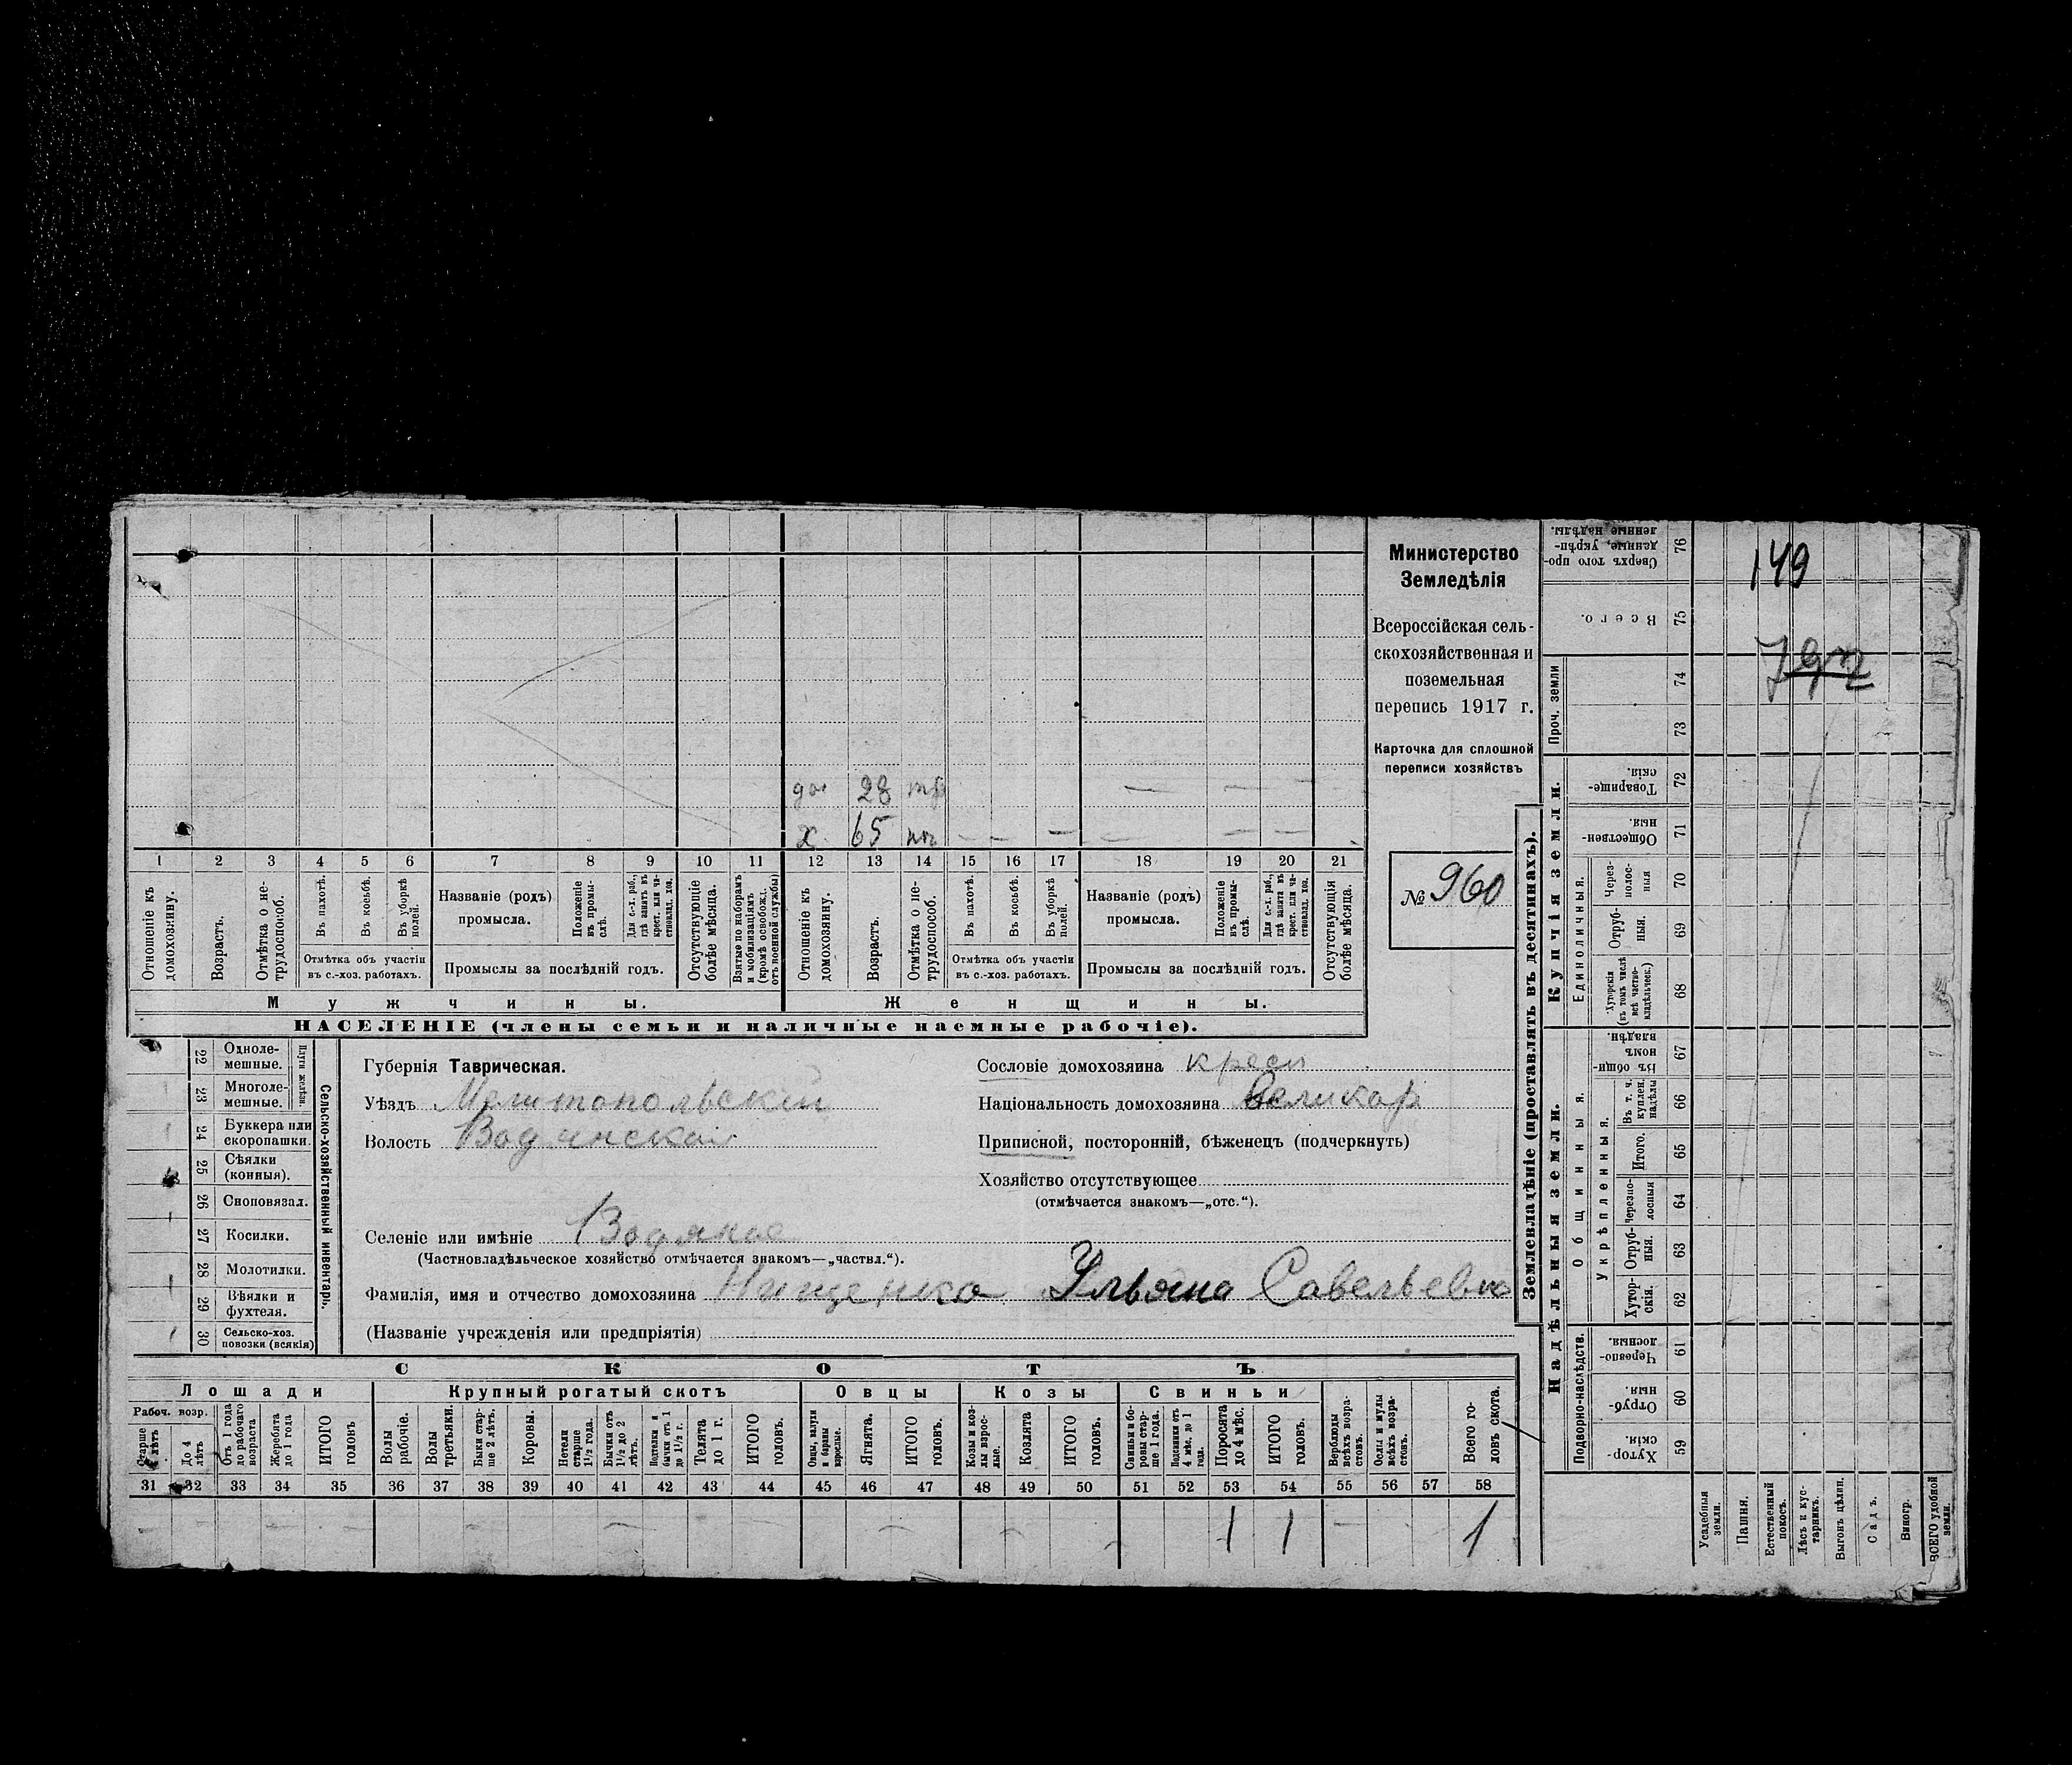 до 28 тр
х 65 нт
1 2 3 4 5 6 7 8 9 10 11 12 13 14 15 16 17 18 19 20 21
Отношеніе къ домохозяину.
Возрастъ.
Отмѣтка о нетрудоспособ.
Въ пахотѣ.
Въ косьбѣ.
Въ уборкѣ полей.
Отмѣтка объ участіи
въ с.-хоз. работахъ.
Названіе (родъ)
промысла.
Положеніе въ промыслѣ.
Для с.-х. раб., гдѣ занятъ въ крест. или частновлад. хоз.
Промыслы за послѣдній годъ.
Отсутствующіе болѣе мѣсяца.
Взятые по наборамъ и мобилизаціямъ (кромѣ освобожд. отъ военной службы)
Отношеніе къ домохозяину.
Возрастъ.
Отмѣтка о нетрудоспособ.
Въ пахотѣ.
Въ косьбѣ.
Въ уборкѣ полей.
Отмѣтка объ участіи
въ с.-хоз. работахъ.
Названіе (родъ)
промысла.
Положеніе въ промыслѣ.
Для с.-х. раб., гдѣ занята въ крест. или частновлад. хоз.
Промыслы за послѣдній годъ.
Отсутствующія болѣе мѣсяца.
Мужчины.
Женщины.
НАСЕЛЕНІЕ (члены семьи и наличные наемные рабочіе).
Министерство
Земледѣлія
Всероссійская сель-
скохозяйственная и
поземельная
перепись 1917 г.
Карточка для сплошной
переписи хозяйствъ
№ 960
22 Одноле-
мешные.
23 Многоле-
мешные.
Плуги желѣзн.
24 Буккера или
скоропашки.
25 Сѣялки
(конныя).
26 Сноповязал.
27 Косилки.
28 Молотилки.
29 Вѣялки и
фухтеля.
30 Сельско-хоз.
повозки (всякія)
Сельско-хозяйственный инвентарь.
Губернія Таврическая.
Уѣздъ Мелитопольскій
Волость Водянская
Селеніе или имѣніе Водяное
(Частновладѣльческое хозяйство отмѣчается знакомъ—„частвл.“).
Фамилія, имя и отчество домохозяина Нищенко Ульяна Савельевна
(Названіе учрежденія или предпріятія)
Сословіе домохозяина крест
Національность домохозяина Великор
Приписной, посторонній, бѣженецъ (подчеркнуть)
Хозяйство отсутствующее
(отмѣчается знакомъ—„отс.“).
СКОТЪ
Лошади
Крупный рогатый скотъ
Овцы
Козы
Свиньи
Рабоч. возр.
Старше 4 лѣтъ
До 4 лѣтъ
Отъ 1 года до рабочаго возраста
Жеребята до 1 года
ИТОГО головъ
Волы рабочіе.
Волы третьяки.
Быки старше 2 лѣтъ.
Коровы.
Нетели старше 1½ года.
Бычки отъ 1½ до 2 лѣтъ.
Подтелки и бычки отъ 1 до 1½ г.
Телята до 1 г.
ИТОГО головъ.
Овцы, валухи и бараны взрослые.
Ягнята.
ИТОГО головъ.
Козы и козлы взрослые.
Козлята
ИТОГО головъ.
Свиньи и боровы старше 1 года.
Подсвинки отъ 4 мѣс. до 1 года.
Поросята до 4 мѣс.
ИТОГО головъ.
Верблюды всѣхъ возрастовъ.
Ослы и мулы всѣхъ возрастовъ.
Всего головъ скота.
31 32 33 34 35 36 37 38 39 40 41 42 43 44 45 46 47 48 49 50 51 52 53 54 55 56 57 58
1 1 1
Землевладѣніе (проставлять въ десятинахъ).
Надѣльныя земли.
Купчія земли.
Проч. земли
Подворно-наслѣдств.
Общинныя.
Укрѣпленныя.
Единоличныя.
Сверхъ того проданные, укрѣпленные надѣлы. 76
Всего. 75
74
73
Товарищескія. 72
Общественныя. 71
Черезполосныя 70
Отрубныя. 69
Хуторскія (въ томъ числѣ всѣ частновладѣльческ.) 68
Въ общинномъ владѣн. 67
Въ т. ч. куплен. надѣлы 66
Итого. 65
Черезполосныя 64
Отрубныя. 63
Хуторскія. 62
Черезполосныя. 61
Отрубныя. 60
Хуторскія. 59
Усадебныя земли.
Пашня.
Естественный покосъ.
Лѣсъ и кустарникъ.
Выгонъ цѣлин.
Садъ.
Виногр.
ВСЕГО удобной земли.
149